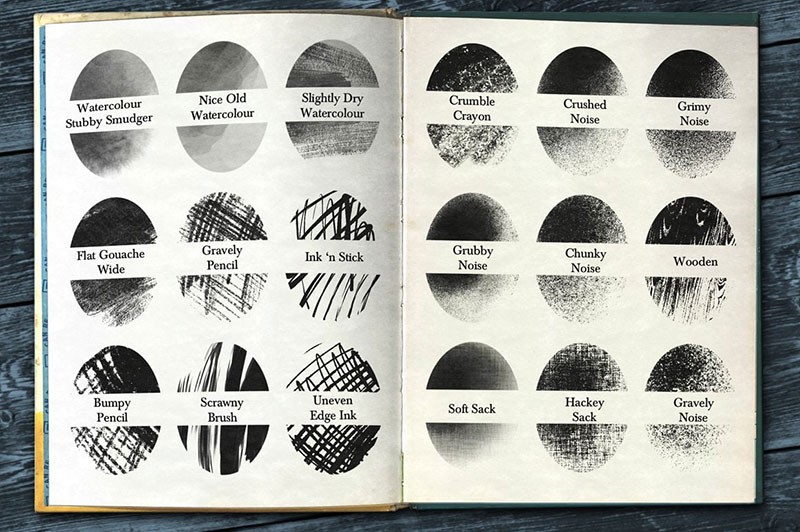 Watercolour
Stubby Smudger
Nice Old
Watercolour
Slightly Dry
Watercolour
Flat Gouache
Wide
Gravely
Pencil
Ink ‘n Stick
Bumpy
Pencil
Scrawny
Brush
Uneven
Edge Ink
Crumble
Crayon
Crushed
Noise
Grimy
Noise
Grubby
Noise
Chunky
Noise
Wooden
Soft Sack
Hackey
Sack
Gravely
Noise